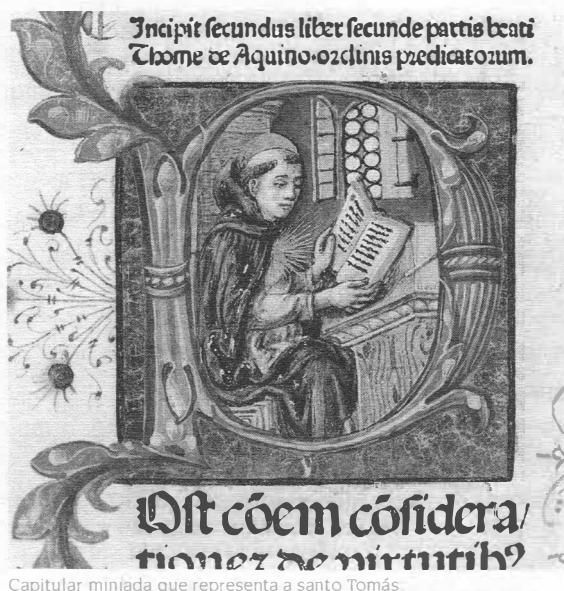 Incipit secundus liber secunde partis beati
Thome de Aquino·ordinis predicatorum.
Ost cōem cōsidera/
tionez de virtutibꝰ
Capitular miniada que representa a santo Tomás